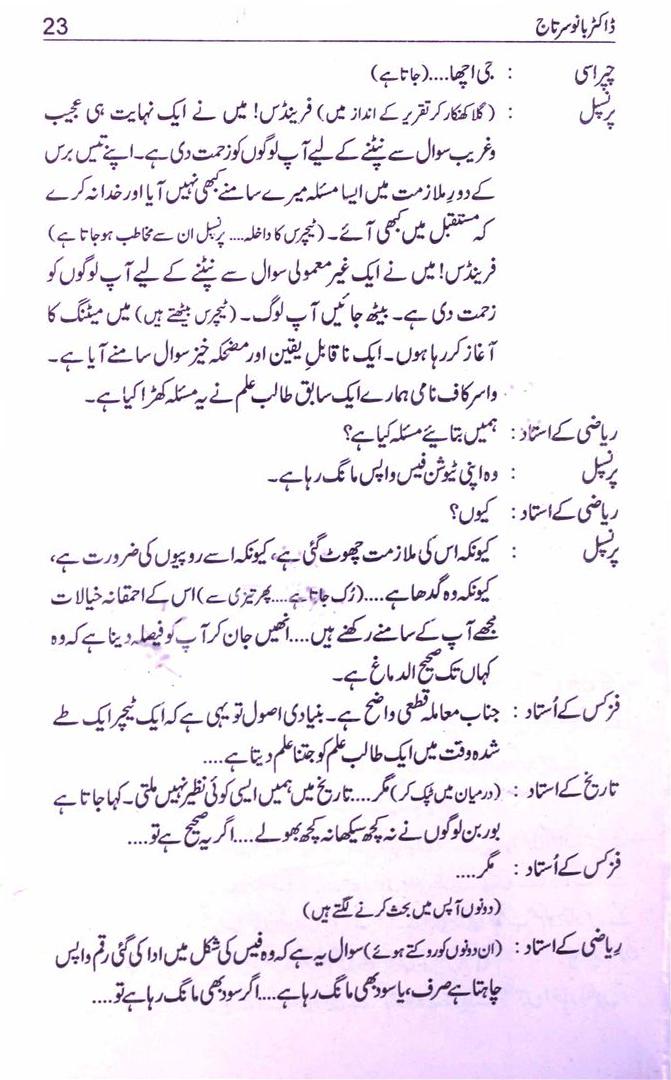 ڈاکٹر بانو سرتاج 23
چپراسی : جی اچھا....(جاتا ہے)
پرنسپل : (گلا کھنکار کر تقریر کے انداز میں) فرینڈس! میں نے ایک نہایت ہی عجیب
وغریب سوال سے نپٹنے کے لیے آپ لوگوں کو زحمت دی ہے۔ اپنے تیس برس
کے دورِ ملازمت میں ایسا مسئلہ میرے سامنے کبھی نہیں آیا اور خدا نہ کرے
کہ مستقبل میں کبھی آئے۔ (ٹیچرس کا داخلہ.... پرنسپل ان سے مخاطب ہو جاتا ہے)
فرینڈس! میں نے ایک غیر معمولی سوال سے نپٹنے کے لیے آپ لوگوں کو
زحمت دی ہے۔ بیٹھ جائیں آپ لوگ۔ (ٹیچرس بیٹھتے ہیں) میں میٹنگ کا
آغاز کر رہا ہوں۔ ایک ناقابلِ یقین اور مضحکہ خیز سوال سامنے آیا ہے۔
واسرکاف نامی ہمارے ایک سابق طالب علم نے یہ مسئلہ کھڑا کیا ہے۔
ریاضی کے استاد : ہمیں بتائیے مسئلہ کیا ہے؟
پرنسپل : وہ اپنی ٹیوشن فیس واپس مانگ رہا ہے۔
ریاضی کے استاد : کیوں؟
پرنسپل : کیونکہ اس کی ملازمت چھوٹ گئی ہے، کیونکہ اسے روپیوں کی ضرورت ہے،
کیونکہ وہ گدھا ہے....(رُک جاتا ہے....پھر تیزی سے) اس کے احمقانہ خیالات
مجھے آپ کے سامنے رکھنے ہیں....انھیں جان کر آپ کو فیصلہ دینا ہے کہ وہ
کہاں تک صحیح الدماغ ہے۔
فزکس کے اُستاد : جناب معاملہ قطعی واضح ہے۔ بنیادی اصول تو یہی ہے کہ ایک ٹیچر ایک طے
شدہ وقت میں ایک طالب علم کو جتنا علم دیتا ہے....
تاریخ کے استاد : (درمیان میں ٹپک کر) مگر....تاریخ میں ہمیں ایسی کوئی نظیر نہیں ملتی۔ کہا جاتا ہے
بوربن لوگوں نے نہ کچھ سیکھا نہ کچھ بھولے....اگر یہ صحیح ہے تو....
فزکس کے اُستاد : مگر....
(دونوں آپس میں بحث کرنے لگتے ہیں)
ریاضی کے استاد : (ان دونوں کو روکتے ہوئے) سوال یہ ہے کہ وہ فیس کی شکل میں ادا کی گئی رقم واپس
چاہتا ہے صرف، یا سود بھی مانگ رہا ہے....اگر سود بھی مانگ رہا ہے تو....